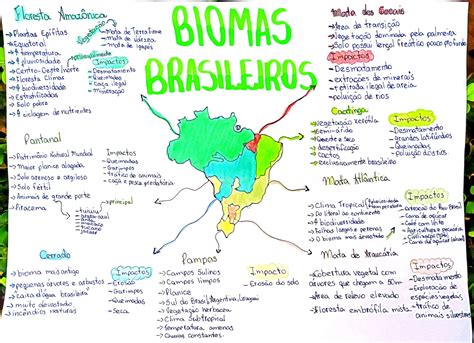 BIOMAS
BRASILEIROS
Floresta Amazônica
→ Plantas Epífitas
→ Equatorial
→ ↑ temperatura
→ ↑ pluviosidade
→ Centro-Oeste/norte
→ Floresta Climax
→ ↑ biodiversidade
→ Estratificadas
→ Solo pobre
→ ↑ ciclagem de nutrientes
Vegetação
→ Mata de Terra firme
→ Mata de várzea
→ Mata de igapós
Impactos
→ Desmatamento
→ Queimadas
→ Caça ilegal
→ Mineração
Mata dos Cocais
→ Área de transição
→ vegetação dominada pela palmeira
→ Solo possui lençol freático pouco profundo
Impactos
→ Desmatamento
→ extrações de minerais
→ retirada ilegal de areia
→ poluição de rios
Caatinga
→ Vegetação xerófila
→ Semi-árido
→ Quente e seco
→ desertificação
→ Cactos
→ Exclusivamente brasileiro
Impactos
→ Desmatamento
→ grandes latifúndios
→ Queimadas
→ Poluição dos rios
Pantanal
→ Patrimônio Natural Mundial
→ Maior planície alagada
→ Solo arenoso e argiloso
→ Solo fértil
→ Animais de grande porte
→ Piracema
Impactos
→ Queimadas
→ Garimpos
→ Tráfico de animais
→ caça e pesca predatória
principal
Mata Atlântica
→ Clima Tropical
→ Do litoral ao continente
→ ↑ biodiversidade
→ Folhas largas e perenes
→ O bioma mais devastado
Impactos
→ Extração do Pau Brasil
→ Cana de açúcar
→ Café com leite
→ Agricultura e pecuária
→ Civilizações
Cerrado
→ bioma mais antigo
→ pequenas árvores e arbustos
→ caixa d'água brasileira
→ muito devastado
→ incêndios naturais
Impactos
→ Erosão
→ Garimpos
→ Queimadas
→ Seca
Pampas
→ Campos Sulinos
→ Campos limpos
→ Planície
→ Sul do Brasil, Argentina, Uruguai
→ Vegetação herbácea
→ Clima Subtropical
→ Temperatura amenas
→ Chuvas constantes
Impacto
→ Erosão do solo
Mata de Araucária
→ Cobertura vegetal com
árvores que chegam a 50m
→ Área de relevo elevado
→ Floresta ombrófila mista
Impactos
→ Desmatamento
→ Exploração de
espécies vegetais
→ tráfico de
animais silvestres